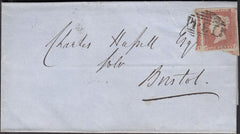 Charles Hassell Esqr
Solr
Bristol.